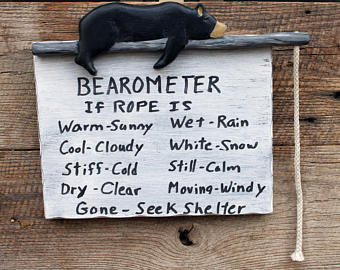 BEAROMETER
IF ROPE IS
Warm-Sunny Wet-Rain
Cool-Cloudy White-Snow
Stiff-Cold Still-Calm
Dry-Clear Moving-Windy
Gone-Seek Shelter